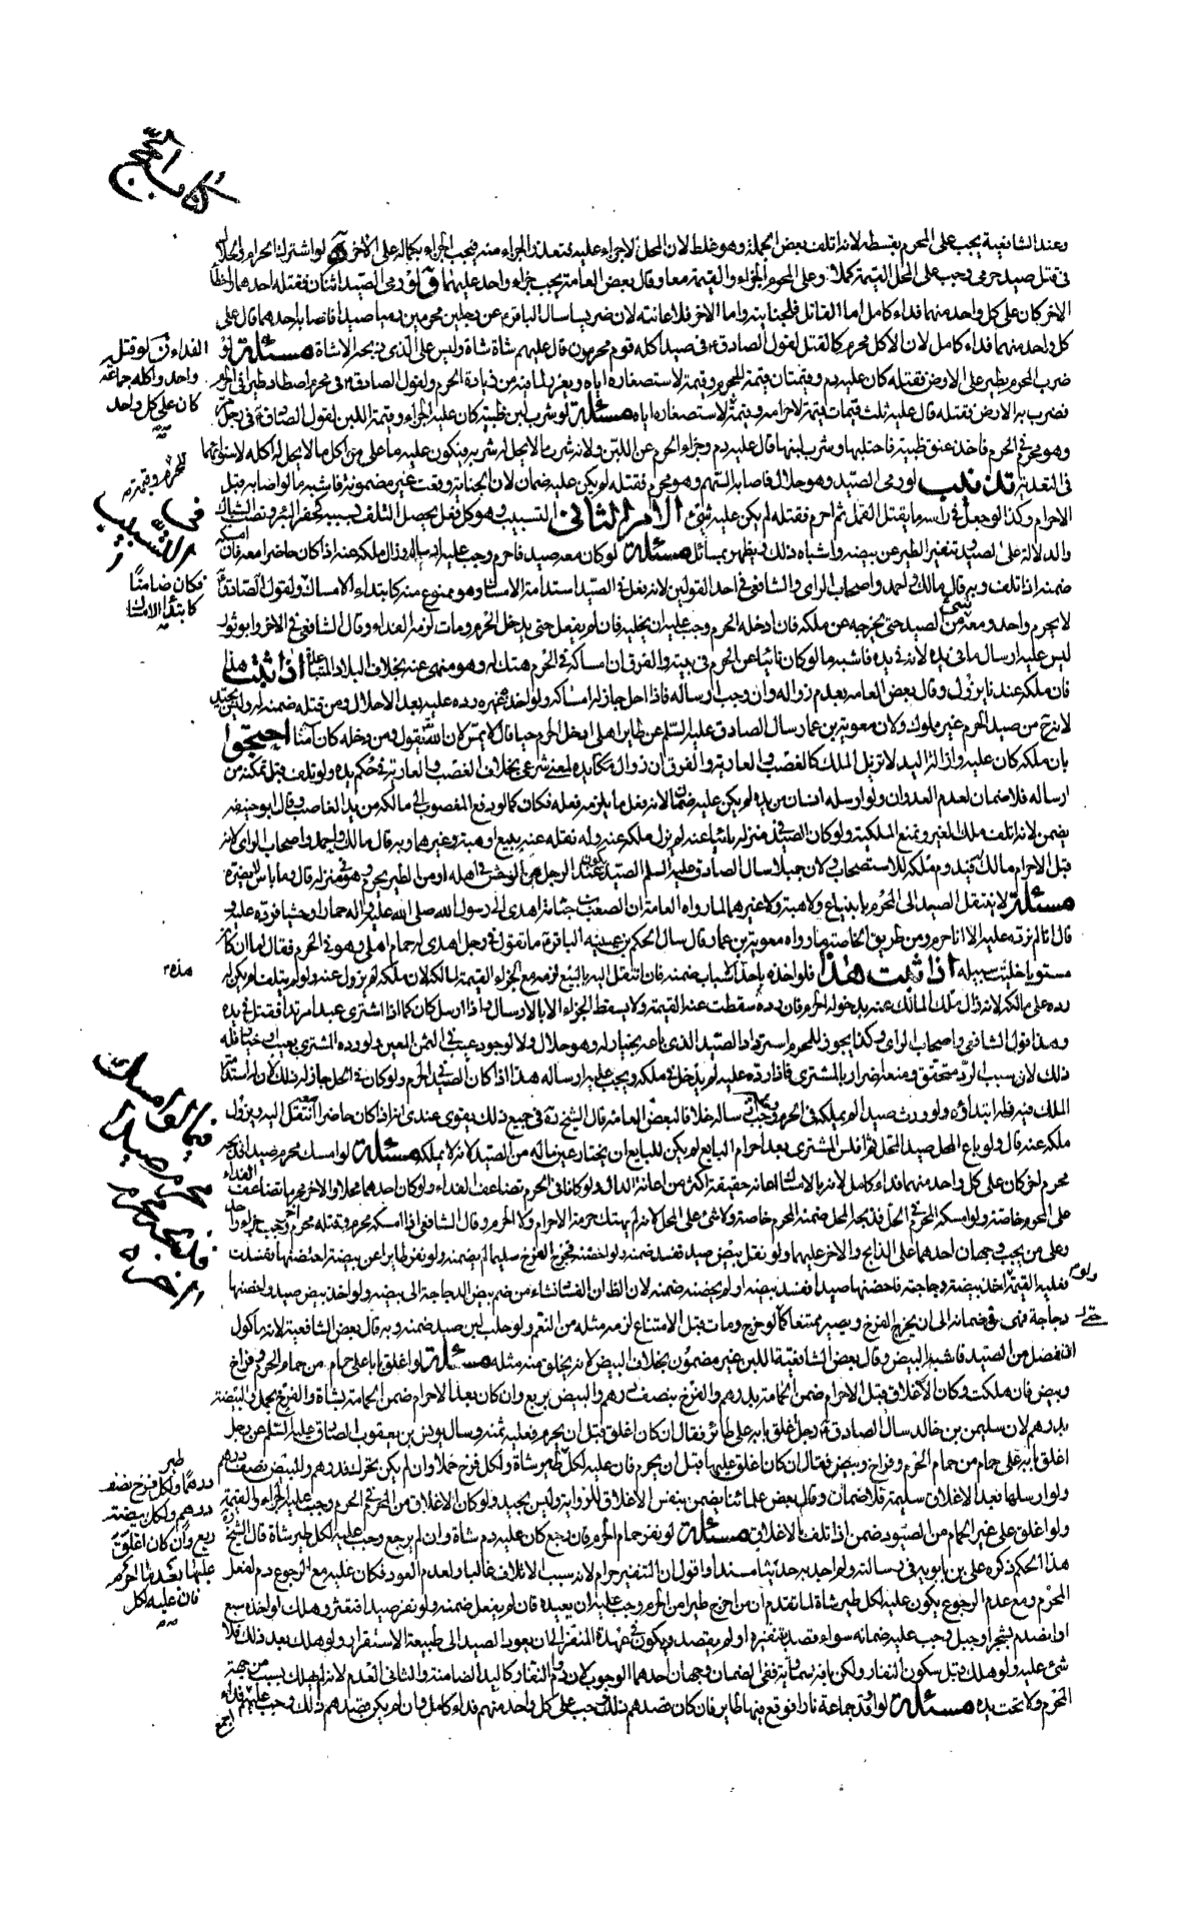 كتاب الحج
وعند الشافعية يجب على المحرم بقسطه لانه اتلف بعض الجملة وهو غلط لان المحل لا جزاء عليه فتعذر الجزاء منه فيجب الجزاء بكماله على الاخر لو اشترك الحرام والحلال
فى قتل صيد حرمى وجب على المحل القيمة كملا وعلى المحرم الجزاء والقيمة معا وقال بعض العامة يجب جزاء واحد عليهما لو رمى الصيد اثنان فقتله احدهما واخطأ
الاخر كان على كل واحد منهما فداء كامل اما القاتل فلجنايته واما الاخر فلاعانته لان ضريسا سال الباقر ع عن رجلين محرمين رميا صيدا فاصابه احدهما قال على
كل واحد منهما فداء كامل لان الاكل محرم كالقتل لقول الصادق ع فى صيد اكله قوم محرمون قال عليهم شاة شاة وليس على الذى ذبحه الا شاة مسئلة لو
ضرب المحرم بطير على الارض فقتله كان عليه دم وقيمتان قيمة للحرم وقيمة لاستصغاره اياه ويعزر لما فيه من زيادة الحرم ولقول الصادق ع فى محرم اصطاد طيرا فى الحرم
فضرب به الارض فقتله قال عليه ثلث قيمات قيمة لاحرامه وقيمة لاستصغاره اياه مسئلة لو شرب لبن ظبية كان عليه الجزاء وقيمة اللبن لقول الصادق ع فى رجل مر
وهو محرم فى الحرم فاخذ عنق ظبية فاحتلبها وشرب لبنها قال عليه دم وجزاء الحرم عن اللبن ولانه شرب ما لا يحل له شربه فيكون عليه ما على من اكل ما لا يحل له اكله لاستوائهما
فى التعدية تذنيب لو رمى الصيد وهو حلال فاصابه السهم وهو محرم فقتله لم يكن عليه ضمان لان الجناية وقعت غير مضمونة فاشبه ما لو اصابه قبل
الاحرام وكذا لو جعل فى راسه ما يقتل القمل ثم احرم فقتله لم يكن عليه شئ الامر الثانى التسبيب وهو كل فعل يحصل التلف بسببه كحفر البئر ونصب الشباك
والدلالة على الصيد وتنفير الطير عن بيضه واشباه ذلك ويظهر بمسائل مسئلة لو كان معه صيد فاحرم وجب عليه ارساله وزال ملكه عنه اذا كان حاضرا معه فان امسكه
ضمنه اذا تلف وبه قال مالك واحمد واصحاب الراى والشافعى فى احد القولين لانه فعل فى الصيد استدامة الامساك وهو ممنوع منه كابتداء الامساك ولقول الصادق ع
لا يحرم واحد ومعه شئ من الصيد حتى يخرجه عن ملكه فان ادخله الحرم وجب عليه ان يخليه فان لم يفعل حتى يدخل الحرم ومات لزمه الفداء وقال الشافعى فى الاخر وابو ثور
ليس عليه ارسال ما فى يده لانه فى يده فاشبه ما لو كان نائيا عن الحرم فى بيته والفرق ان امساكه فى الحرم هتك له وهو منهى عنه بخلاف البلاد المتباعدة اذا ثبت هذا
فان ملكه عندنا يزول وقال بعض العامه بعدم زواله وان وجب ارساله فاذا احل جاز له امساكه ولو اخذه غيره رده عليه بعد الاحلال ومن قتله ضمنه له وليس بجيد
لانه من صيد الحرم غير مملوك ولان معوية بن عمار سال الصادق عليه السلم عن طاير اهلى ادخل الحرم حيا قال لا يمس لان الله تعالى يقول ومن دخله كان آمنا احتجوا
بان ملكه كان عليه وازالة اليد لا تزيل الملك كالغصب والعارية والفرق ان زوال ملكه يده لمعنى شرعى بخلاف الغصب والعارية فحكم يده ولو تلف قبل تمكنه من
ارساله فلا ضمان لعدم العدوان ولو ارسله انسان من يده لم يكن عليه ضمان لانه فعل ما يلزمه فعله فكان كما لو دفع المغصوب الى مالكه من يد الغاصب وقال ابو حنيفه
يضمن لانه اتلف ملك الغير ويمنع الملكية ولو كان الصيد فى منزله نائيا عنه لم يزل ملكه عنه وله نقله عنه ببيع او هبة وغيرهما وبه قال مالك واحمد واصحاب الراى لانه
قبل الاحرام مالك فيدوم ملكه للاستصحاب ولان جميلا سال الصادق عليه السلم الصيد يكون عند الرجل من الوحش فى اهله او من الطير يحرم وهو فى منزله قال وما باس لا يضره
مسئلة لا ينتقل الصيد الى المحرم بابتياع ولا هبة ولا غيرهما لما رواه العامة ان الصعب بن جثامة اهدى الى رسول الله صلى الله عليه واله حمارا وحشيا فرده عليه و
قال انا لم نرده عليه الا انا حرم ومن طريق الخاصة ما رواه معوية بن عمار قال سال الحكم بن عيينة الباقر ع ما تقول فى رجل اهدى له حمام اهلى وهو فى الحرم فقال اما ان كان
مستويا خليت سبيله اذا ثبت هذا فلو اخذه باحد هذه الاسباب ضمنه فان انتقل اليه بالبيع لزمه مع الجزاء القيمة لمالكه لان ملكه لم يزول عنه ولو لم يتلف لم يكن له
رده على مالكه لانه زال ملك المالك عنه بدخوله الحرم فان رده سقطت عنه القيمة ولا يسقط الجزاء الا بالارسال واذا ارسل كان كما اذا اشترى عبدا مرتدا فقتل فى يده
وهذا قول الشافعى واصحاب الراى وكذا لا يجوز للمحرم استرداد الصيد الذى باعه بخيار له وهو حلال ولا لوجود عيب فى الثمن المعين ولو رده المشترى بعيب او خيار فله
ذلك لان سبب الرد متحقق ومنعه اضرار بالمشترى فاذا رده عليه لم يدخل فى ملكه ويجب عليه ارساله هذا اذا كان الصيد فى الحرم ولو كان فى الحل جاز له ذلك لان له استدامة
الملك فيه فله ابتداؤه ولو ورث صيدا لم يملكه فى الحرم ووجب ارساله خلافا لبعض العامة قال الشيخ ره فى جميع ذلك يقوى عندى انه اذا كان حاضرا معه انتقل اليه ويزول
ملكه عنه قال ولو باع المحل صيدا لمحل ثم افلس المشترى بعد احرام البايع لم يكن للبايع ان يختار عين ماله من الصيد لانه لا يملكه مسئلة لو امسك محرم صيدا فذبحه
محرم اخر كان على كل واحد منهما فداء كامل لانه بالامساك اعانه حقيقة اكثر من اعانة الدال ولو كانا فى الحرم تضاعف الفداء ولو كان احدهما محلا والاخر محرما تضاعف الفداء
على المحرم خاصة ولو امسكه المحرم فى الحل فذبحه المحل ضمنه المحرم خاصة ولا شئ على المحل لانه لم يهتك حرمة الاحرام ولا الحرم وقال الشافعى اذا امسكه محرم وقتله محرم اخر وجب جزاء واحد
وعلى من يجب وجهان احدهما على الذابح والاخر عليهما ولو نقل بيض صيد ففسد ضمنه ولو احضنه فخرج الفرخ سليما لم يضمنه ولو نفر طايرا عن بيضة احتضنها ففسدت
فعليه القيمة ولو اخذ بيضة دجاجة فاحضنها صيدا ففسد بيضه او لم يحضنه ضمنه لان الظاهر ان الفساد نشاء من ضم بيض الدجاجة الى بيضه ولو اخذ بيض صيد واحضنها
دجاجة فهى فى ضمانه الى ان يخرج الفرخ ويصير ممتنعا حتى لو خرج ومات قبل الامتناع لزمه مثله من النعم ولو حلب لبن صيد ضمنه وبه قال بعض الشافعية لانه ماكول
انفصل من الصيد فاشبه البيض وقال بعض الشافعية اللبن غير مضمون بخلاف البيض لانه يخلق منه مثله مسئلة لو اغلق بابا على حمام من حمام الحرم وفراخ
وبيض فان هلكت وكان الاغلاق قبل الاحرام ضمن الحمامة بدرهم والفرخ بنصف درهم والبيض بربع وان كان بعد الاحرام ضمن الحمامة بشاة والفرخ بحمل والبيضة
بدرهم لان سليمن بن خالد سال الصادق ع رجل اغلق بابه على طائر فقال ان كان اغلق قبل ان يحرم فعليه ثمنه وسال يونس بن يعقوب الصادق عليه السلم عن رجل
اغلق بابه على حمام من حمام الحرم وفراخ وبيض فقال ان كان اغلق عليها قبل ان يحرم فان عليه لكل طير شاة ولكل فرخ حملا وان لم يكن تحرك فدرهم وللبيض نصف درهم
ولو ارسلها بعد الاغلاق سليمة فلا ضمان وقال بعض علمائنا يضمن بنفس الاغلاق للرواية وليس بجيد ولو كان الاغلاق من المحرم فى الحرم وجب عليه الجزاء والقيمة
ولو اغلق على غير الحمام من الصيود ضمن اذا تلف بالاغلاق مسئلة لو نفر حمام الحرم فان رجع كان عليه دم شاة وان لم يرجع وجب عليه لكل طير شاة قال الشيخ ره
هذا الحكم ذكره على بن بابويه فى رسالته ولم اجد به حديثا مسندا واقول ان التنفير حرام لانه سبب الاتلاف غالبا ولعدم العود فكان عليه مع الرجوع دم لفعل
المحرم ومع عدم الرجوع يكون عليه لكل طير شاة لما تقدم ان من اخرج طيرا من الحرم وجب عليه ان يعيده فان لم يفعل ضمنه ولو نفر صيدا فتعثر وهلك او اخذه سبع
او انصدم بشجر او جبل وجب عليه ضمانه سواء قصد بتنفيره او لم يقصد ويكون فى عهدة التنفير الى ان يعود الصيد الى طبيعة الاستقرار ولو هلك بعد ذلك فلا
شئ عليه ولو هلك قبل سكون النفار ولكن بآفة سماوية ففى الضمان وجهان احدهما الوجوب لان دوام النفار كاليد الضامنة والثانى العدم لانه لم يهلك بسبب من جهة
المحرم ولا تحت يده مسئلة لو اوقد جماعة نارا فوقع فيها طاير فان كان قصدهم ذلك وجب على كل واحد منهم فداء كامل وان لم يكن قصدهم ذلك وجب عليهم فداء
اجمع
الفداء فى لو قتله
واحد واكله جماعة
كان على كل واحد
للحرم وقيمة
فى
التسبيب
فكان ضامنا
كابتداء الامساك
هذه
فيما لو امسك
محرم صيدا
فذبحه محرم
اخر
ولو
حتى
طير
درهما ولكل فرخ نصف
درهم ولكل بيضة
ربع وان كان اغلق
عليها بعد ما احرم
فان عليه لكل